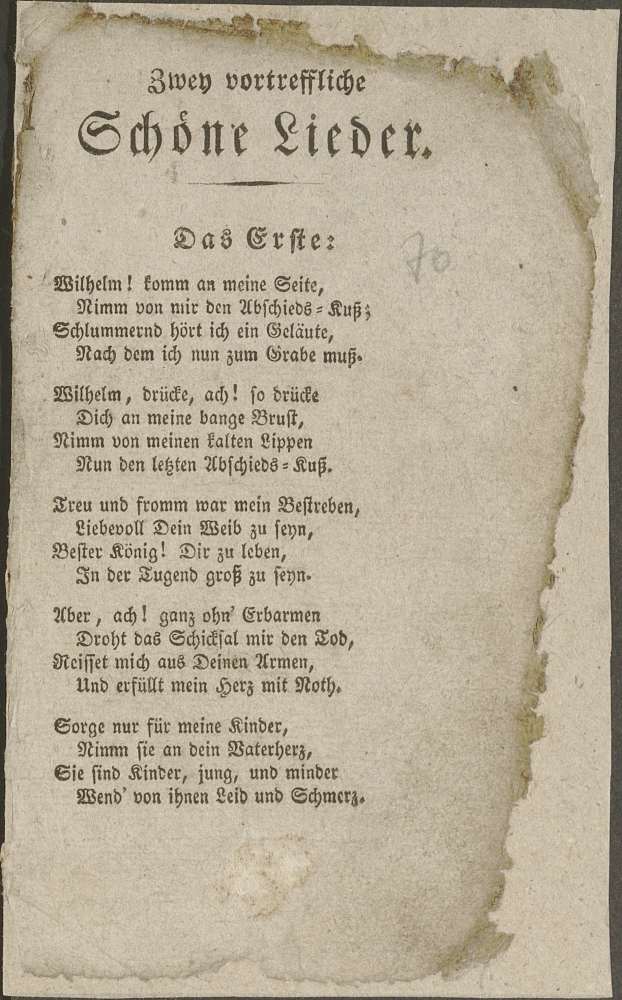 Zwey vortreffliche
Schöne Lieder.
Das Erste:
70
Wilhelm! komm an meine Seite,
Nimm von mir den Abschieds-Kuß;
Schlummernd hört ich ein Geläute,
Nach dem ich nun zum Grabe muß.
Wilhelm, drücke, ach! so drücke
Dich an meine bange Brust,
Nimm von meinen kalten Lippen
Nun den letzten Abschieds-Kuß.
Treu und fromm war mein Bestreben,
Liebevoll Dein Weib zu seyn,
Bester König! Dir zu leben,
In der Tugend groß zu seyn.
Aber, ach! ganz ohn' Erbarmen
Droht das Schicksal mir den Tod,
Reisset mich aus Deinen Armen,
Und erfüllt mein Herz mit Noth.
Sorge nur für meine Kinder,
Nimm sie an dein Vaterherz,
Sie sind Kinder, jung, und minder
Wend' von ihnen Leid und Schmerz.